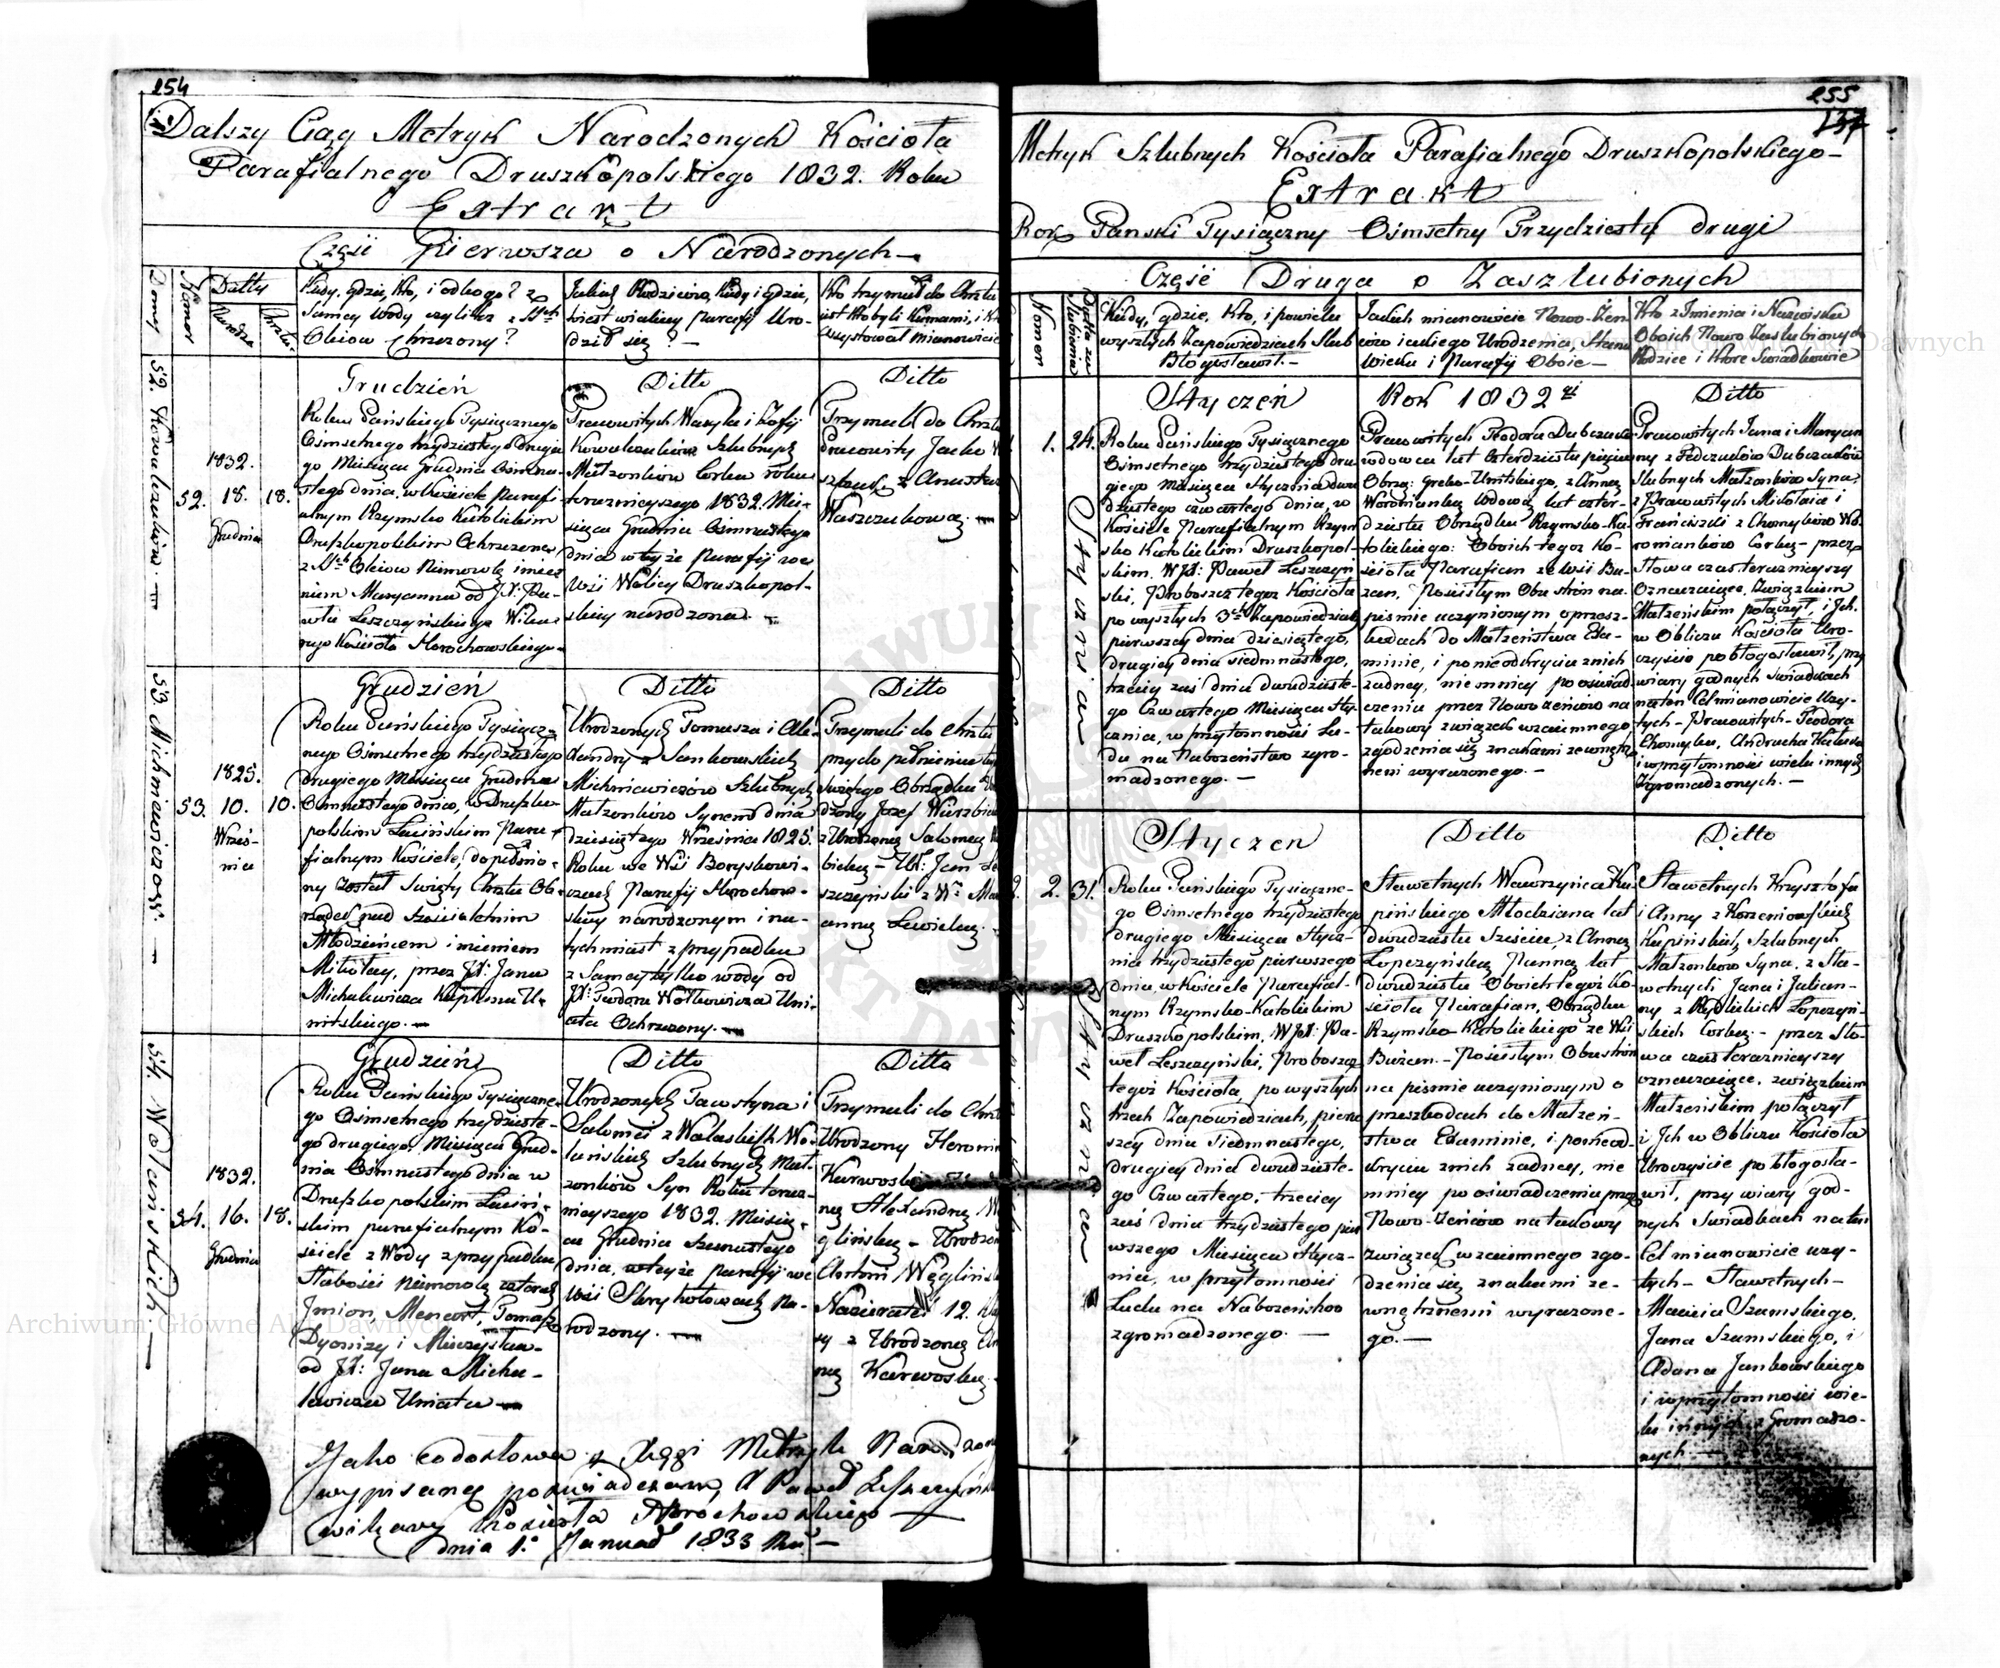 254
Dalszy Ciąg Metryk Narodzonych Kościoła
Parafialnego Druszkopolskiego 1832. Roku
Extrakt
Część Pierwsza o Narodzonych
Domy
Nomer
Datty
Rodze
Chrztu
Kiedy, gdzie, kto, i od kogo? z
samey wody czyli też z Stch
Oleiow Chrzczony?
Jakich Rodzicow, kiedy i gdzie,
w iakiey Parafij Uro-
dził się? —
Kto trzymał do Chrztu
Assystował mianowicie
52. Kowalczuków
52.
1832.
18.
Grudnia
18.
Grudzień
Roku Pańskiego Tysiącznego
Ośmsetnego trzydziestego Drugie-
go Miesiąca Grudnia Ośmna-
stego dnia, w Kościele Parafi-
alnym Rzymsko Katolickim
Druszkopolskim Ochrzczona
z Stch Oleiow Niemowlę imie-
niem Maryanna od JX: Pa-
wła Leszczyńskiego Wika-
rego Kościoła Horochowskiego —
Ditto
Pracowitych Wasyla i Zofij
Kowalczuków Szlubnych
Małżonków Corka roku
teraznieyszego 1832. Mie-
siąca Grudnia Ośmnastego
dnia w teyże Parafij we
Wsi Wolicy Druszkopol-
skiey narodzona. —
Ditto
Trzymali do Chrztu
Pracowity Jacko
z Anastas
Waszczukową. —
53. Michniewiczow.
53.
1825.
10.
Wrze-
śnia
10.
Grudzień
Roku Pańskiego Tysiącz-
nego Ośmsetnego trzydziestego
Drugiego Miesiąca Grudnia
Ośmnastego dnia, w Druszko-
polskim Łacińskim Para-
fialnym Kościele, dopełnio-
ny został Święty Chrztu Ob-
rządek nad sześcioletnim
Młodzieńcem imieniem
Mikołay, przez JX: Jana
Michalewicza Kapłana U-
nitskiego. —
Ditto
Urodzonych Tomasza i Ale-
xandry z Jankowskich
Michniewiczów Szlubnych
Małżonków Synem dnia
dziesiątego Września 1825.
Roku we Wsi Boryskowi-
czach Parafij Horochow-
skiey narodzonym i na-
tychmiast z przypadku
z Samey tylko wody od
JX: Teodora Wołkowicza Uni-
ata Ochrzczony. —
Ditto
Trzymali do Chrztu
przy dopełnieniu
świętego Obrządku
dzony Jozef Wierzbic
z Urodzoną Salomeą
bicką — Ur: Jan Le
szczyński z
anną Lewicką.
54. Wolańskich —
54.
1832.
16.
Grudnia
18.
Grudzień
Roku Pańskiego Tysiączne-
go Ośmsetnego trzydzieste-
go drugiego, Miesiąca Grud-
nia Ośmnastego dnia w
Druszkopolskim Łaciń-
skim parafialnym Ko-
ściele z Wody z przypadku
słabości Niemowlę czterech
Jmion, Tomasz
Dyonizy i Mieczysław
od JX: Jana Micha-
lewicza Uniata —
Ditto
Urodzonych Fawstyna i
Salomei z Wolańskich Wo-
lańskich Szlubnych Mał-
żonków Syn Roku teraz-
nieyszego 1832. Miesią-
ca Grudnia Szesnastego
dnia, w teyże parafij we
Wsi Skrychołowach na-
rodzony. —
Ditto
Trzymali do Chrz
Urodzony Hieronim
Karwoski
ną Alexandrą
glińską — Urodzon
Antoni Węglińs
12.
sy z Urodzoną
ną Karwoską
Jako co do słowa z Xięgi Metryk Narodzon
wypisane poswiadczam, X Paweł Leszczyńsk
wikary Kościoła Horochowskiego
dnia 1: Januar 1833 Ru. —
255
137
Metryk Szlubnych Kościoła Parafialnego Druszkopolskiego —
Extrakt
Rok Pański Tysiączny Ośmsetny Trzydziesty drugi
Część Druga o Zaszlubionych
Nomer
Datta za-
szlubienia
Kiedy, gdzie, kto, i po wielu
wyszłych zapowiedziach Szlub
Błogosławił. —
Jakich mianowicie Nowo-Żeń-
ców iakiego Urodzenia, Stanu
wieku i Parafij Oboie —
Kto z Imienia i Nazwiska
Oboich Nowo Zaszlubionych
Rodzice i które Swiadkowie
1.
24.
Stycznia
Styczeń
Roku Pańskiego Tysiącznego
Ośmsetnego trzydziestego dru-
giego Miesiąca Stycznia dwu-
dziestego czwartego dnia, w
Kościele Parafialnym Rzym-
sko Katolickim Druszkopol-
skim, WJX: Paweł Leszczyń-
ski, Proboszcz tegoż Kościoła
po wyszłych 3ch Zapowiedziach
pierwszey dnia dziesiątego,
drugiey dnia siedmnastego,
trzeciey zaś dnia dwudzieste-
go Czwartego Miesiąca Sty-
cznia, w przytomności Lu-
du na Nabożeństwo zgro-
madzonego. —
Rok 1832 gi
Pracowitych Teodora Dubczaka
wdowca lat czterdziestu pięciu
Obrzą: Greko-Unitskiego, z Anną
Woromianką Wdową lat czter-
dziestu Obrządku Rzymsko-Ka-
tolickiego: Oboich tegoż Ko-
ścioła Parafian ze Wsi Bu-
żan, Pościsłym Obu stron na
piśmie uczynionym o przesz-
kodach do Małżeństwa Exa-
minie, i ponieodkryciu z nich
żadney, niemniey po oświad-
czeniu przez Nowo żeńców na
takowy związek wzaiemnego
zgodzenia się znakami zewnętrz-
nemi wyrażonego. —
Ditto
Pracowitych Jana i Maryan-
ny z Fedczuków Dubczaków
Szlubnych Małżonków Syna,
z Pracowitych Mikołaia i
Franciszki z Chomyków Wo-
romianków Corkę — przez
Słowa czas teraznieyszy
Oznaczaiące, Związkiem
Małżeńskim połączył, i Jch
w Obliczu Kościoła Uro-
czyście pobłogosławił, przy
wiary godnych Świadkach
na ten Cel mianowicie Uży-
tych — Pracowitych — Teodora
Chomyka, Andrucha
i w przytomności wielu innych
Zgromadzonych. —
2.
31.
Stycznia
Styczeń
Roku Pańskiego Tysiączne-
go Ośmsetnego trzydziestego
drugiego Miesiąca Stycz-
nia trzydziestego pierwszego
dnia, w Kościele Parafial-
nym Rzymsko-Katolickim
Druszkopolskim, WJX: Pa-
weł Leszczyński, Proboszcz
tegoż Kościoła, po wyszłych
trzech Zapowiedziach, pierw-
szey dnia Siedmnastego,
drugiey dnia dwudzieste-
go Czwartego, trzeciey
zaś dnia trzydziestego pier-
wszego Miesiąca Stycz-
nia, w przytomności
Ludu na Nabożeństwo
zgromadzonego. —
Ditto
Sławetnych Wawrzyńca Ku-
pińskiego Młodziana lat
dwudziestu Sześciu, z Anną
Łopczyńską Panną lat
dwudziestu Oboich tegoż Ko-
ścioła Parafian, Obrządku
Rzymsko-Katolickiego ze Wsi
Bużan. — Pościsłym Obu stron
na piśmie uczynionym o
przeszkodach do Małżeń-
stwa Examinie, i ponieod-
kryciu z nich żadney, nie-
mniey po oświadczeniu przez
Nowo-Żeńców na takowy
związek wzaiemnego zgo-
dzenia się znakami ze-
wnętrznemi wyrażone-
go. —
Ditto
Sławetnych Krysztofa
i Anny z Korzeniowskich
Kupińskich, Szlubnych
Małżonków Syna, z Sła-
wetnych Jana i Julian-
ny z Łopczyń-
skich Corkę. — przez Sło-
wa czas teraznieyszy
oznaczaiące, związkiem
Małżeńskim połączył
i Jch w Obliczu Kościoła
Uroczyście pobłogosła-
wił, przy wiary god-
nych Świadkach na ten
Cel mianowicie uży-
tych — Sławetnych —
Macieia Szumskiego,
Jana Szumskiego, i
Adama Jankowskiego
i w przytomności wie-
lu innych zgromadzo-
nych. —
Archiwum Główne Akt Dawnych